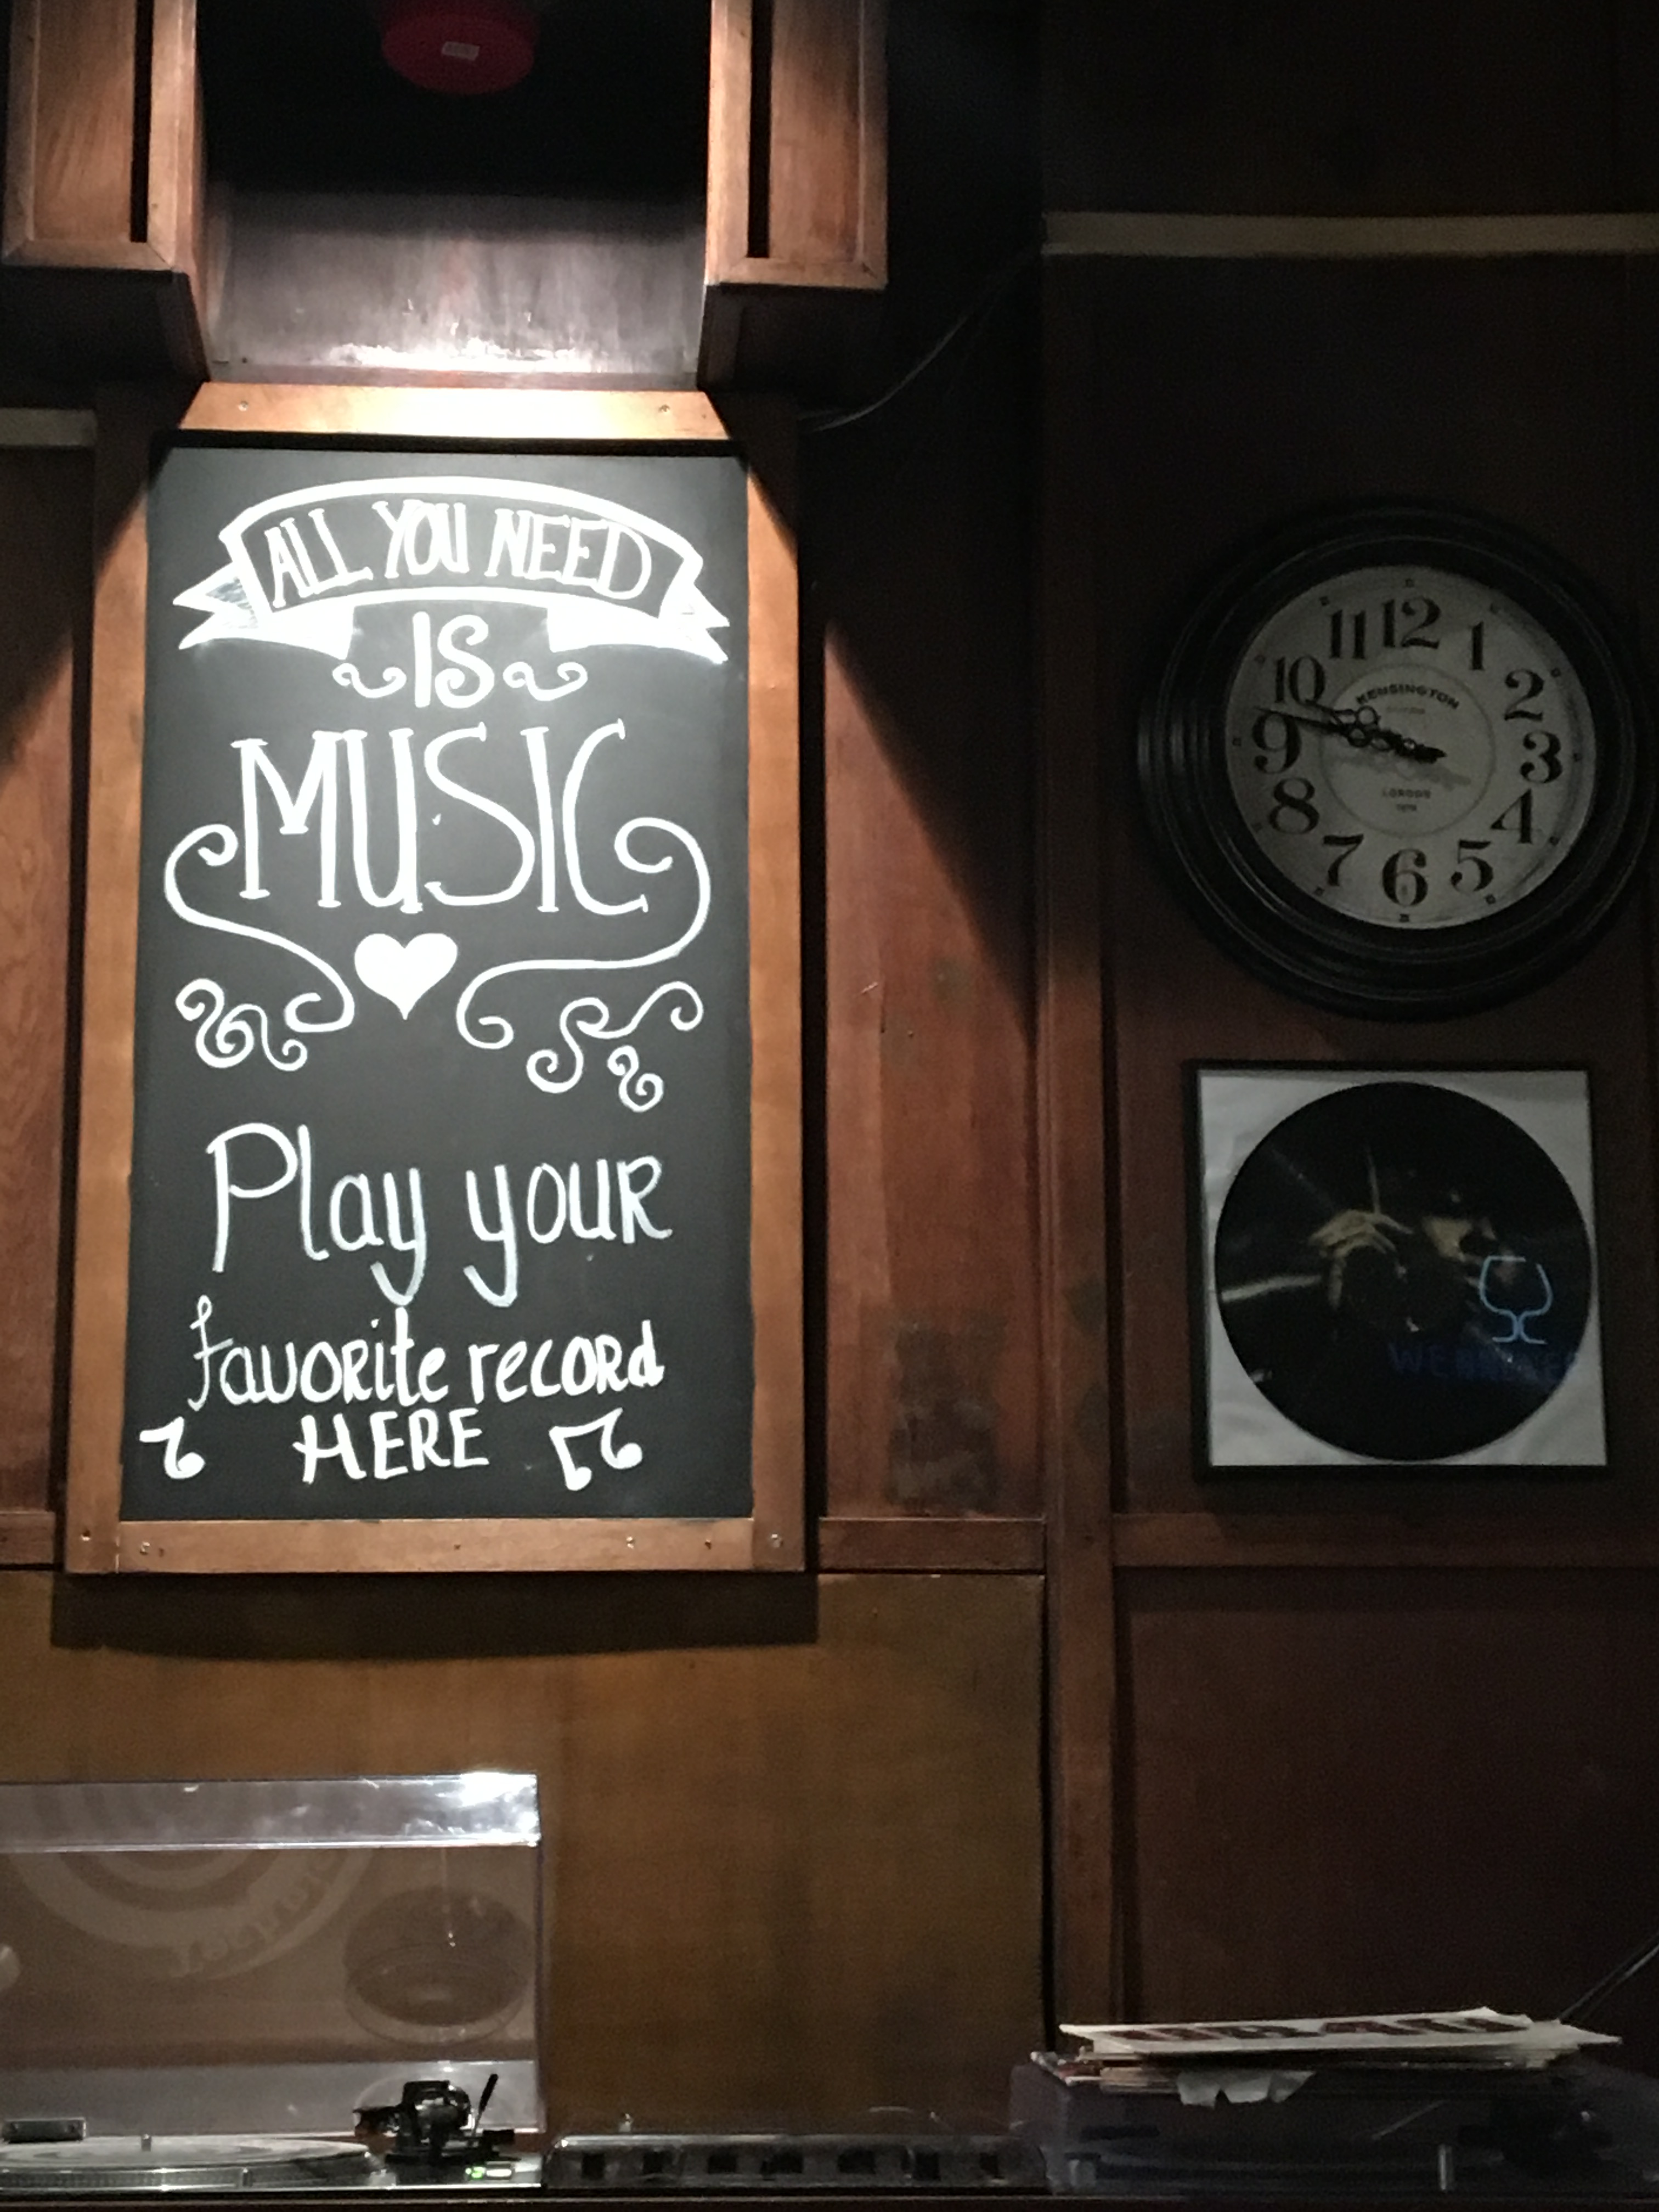 ALL YOU NEED
IS
MUSIC
Play your
favorite record
HERE
11 12 1
10 2
9 3
8 4
7 6 5
KENSINGTON
LONDON